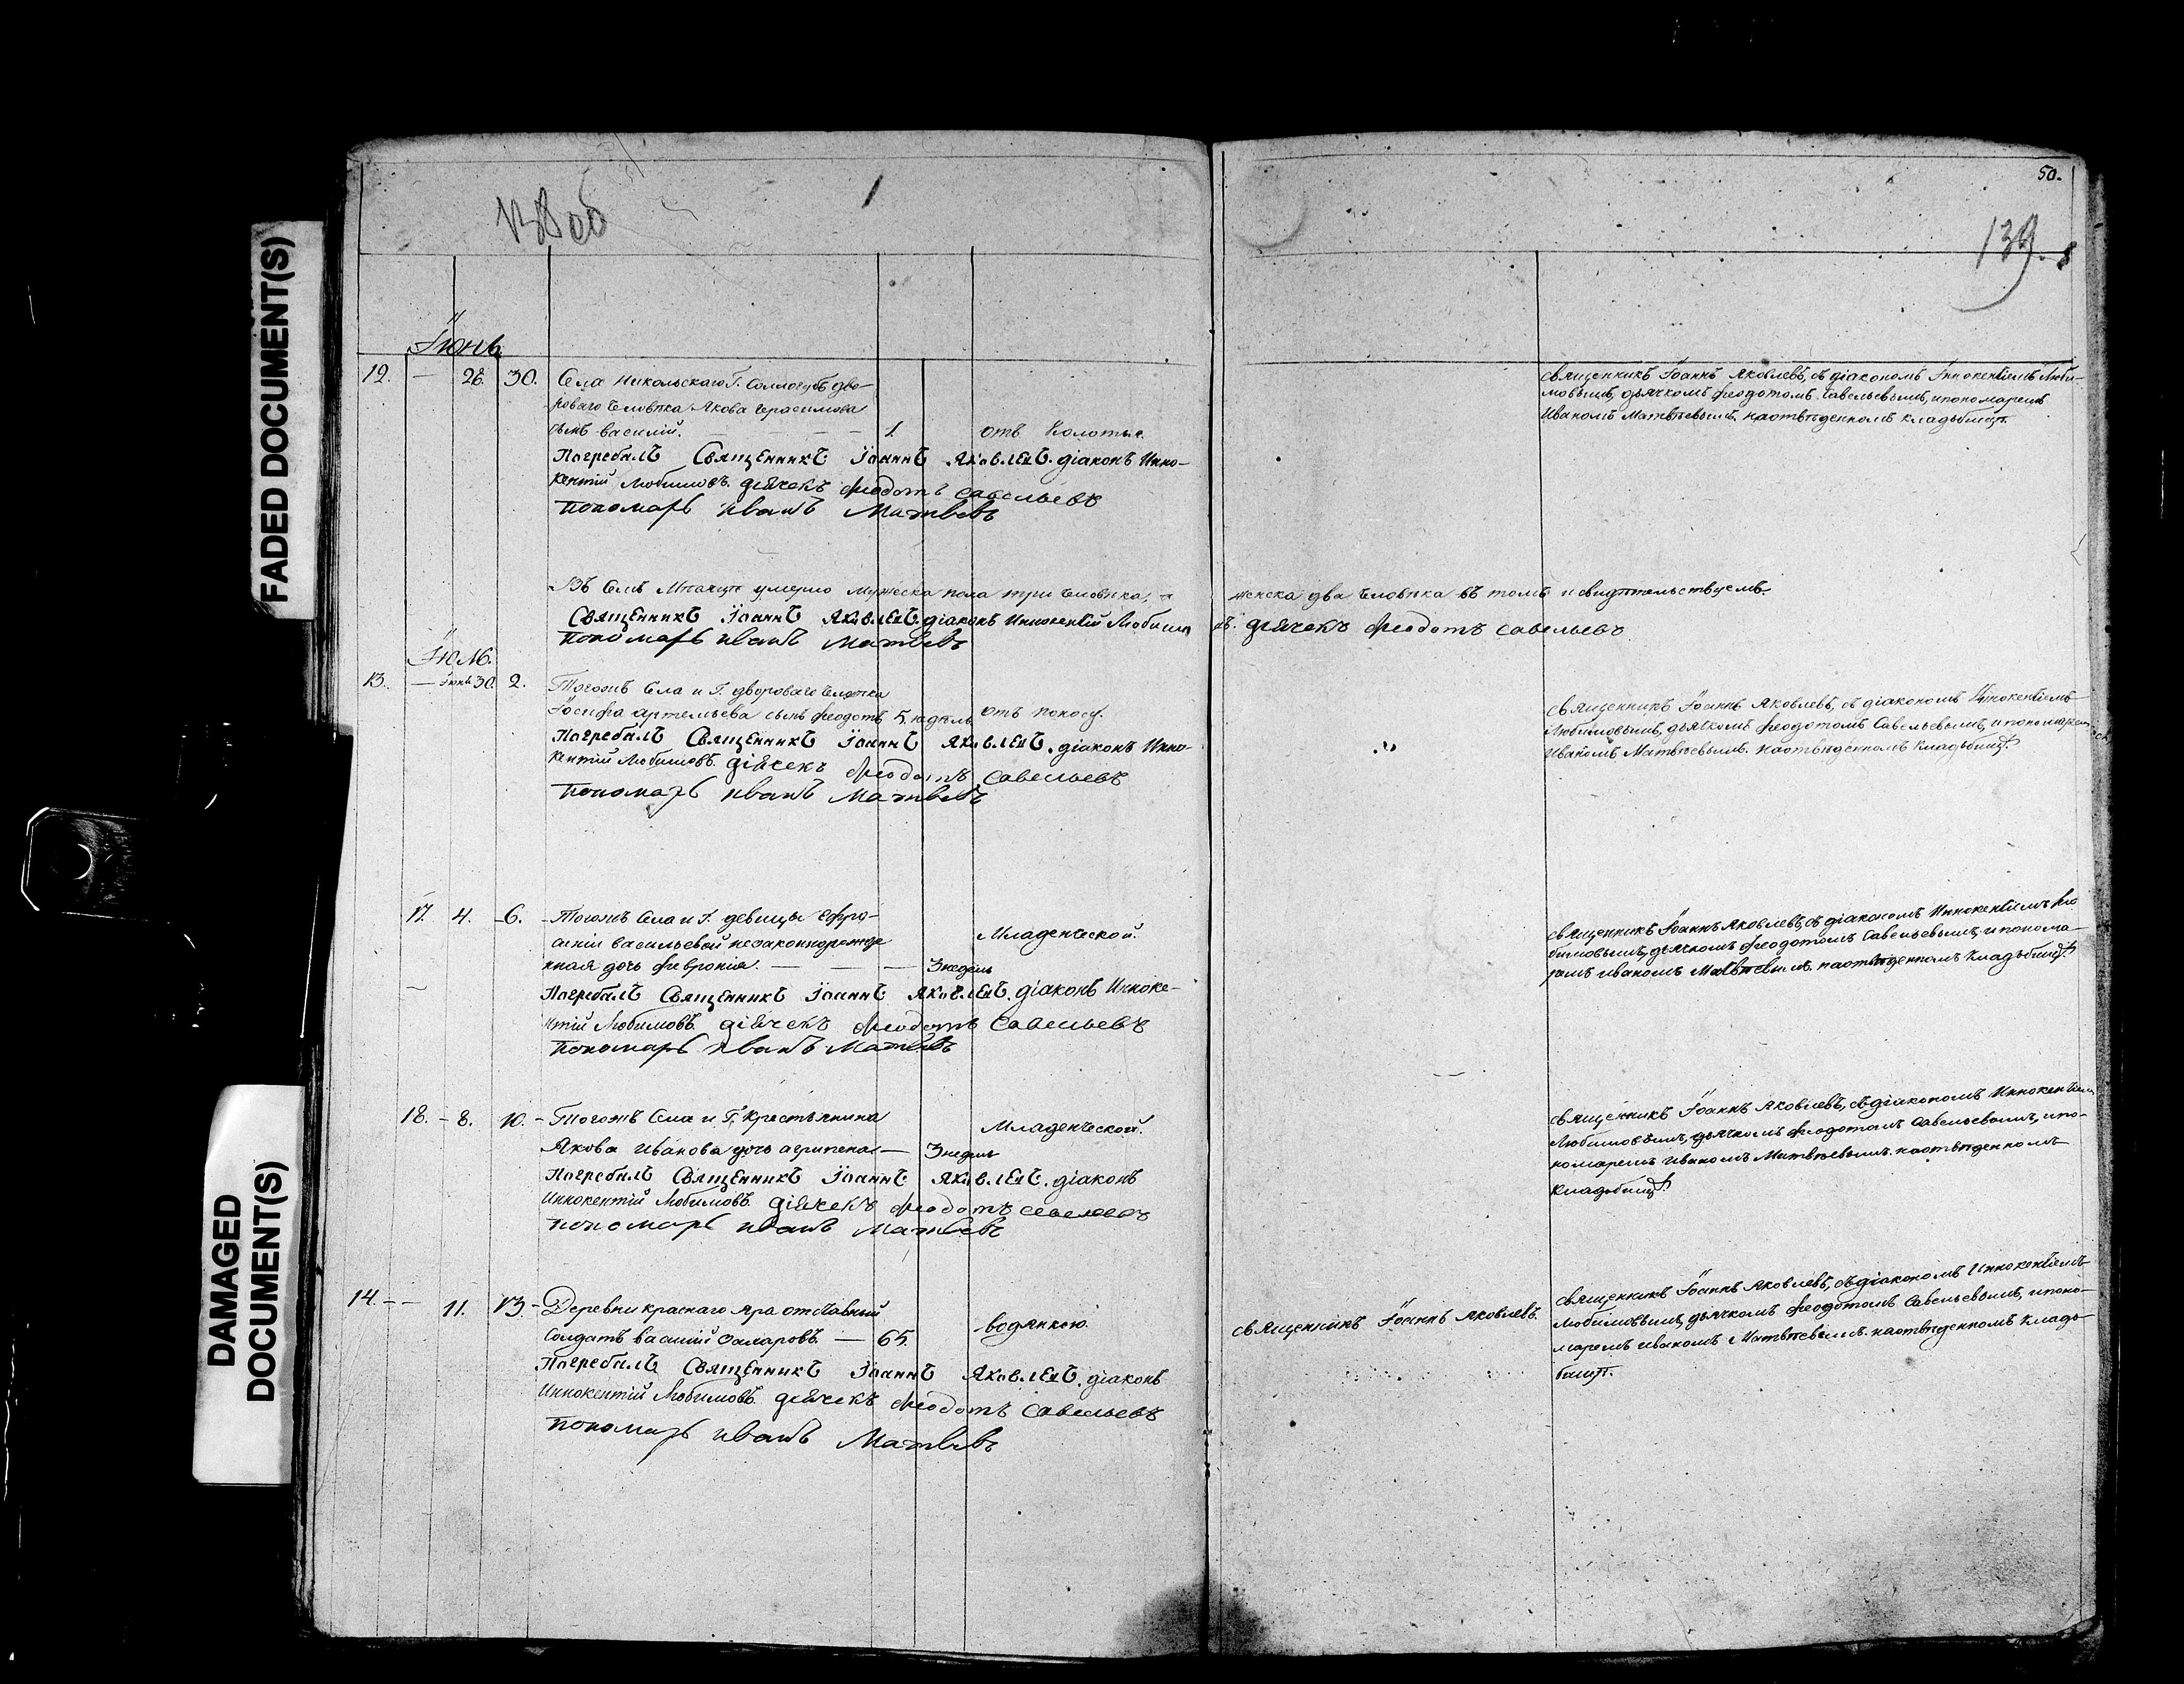 FADED DOCUMENT(S)
DAMAGED
DOCUMENT(S)
138 об
50.
139.
Іюнь
12. — 28. 30. Села Никольскаго Г. Соллогубъ дво-
роваго человѣка Якова Герасимова
сынъ василій. — — — 1. отъ Колотья.
Погребалъ Священникъ Іоаннъ Яковлевъ. діаконъ Инно-
кентій Любимовъ. дьячекъ Ѳеодотъ Савельевъ
пономарь иванъ Матвѣевъ
священникъ Іоаннъ Яковлевъ, съ діакономъ Іннокентіемъ Люби-
мовымъ, дьячкомъ Ѳеодотомъ Савельевымъ, и пономаремъ
Иваномъ Матвѣевымъ. на отвѣденномъ кладьбищѣ.
Въ Семъ Мѣсяцѣ умерло мужеска пола три человѣка, и женска два человѣка въ томъ и свидѣтельствуемъ.
Священникъ Іоаннъ Яковлевъ. діаконъ Иннокентій Любимовъ. дьячекъ Ѳеодотъ Савельевъ
пономарь иванъ Матвѣевъ
Іюль.
13. — Іюнь 30. 2. Тогожъ Села и Г. двороваго человѣка
Іосифа артемьева сынъ Ѳеодотъ 5. недѣль отъ поносу.
Погребалъ Священникъ Іоаннъ Яковлевъ. діаконъ Инно-
кентій Любимовъ. дьячекъ Ѳеодотъ Савельевъ
пономарь иванъ Матвѣевъ
священникъ Іоаннъ Яковлевъ, съ діакономъ Іннокентіемъ
Любимовымъ, дьячкомъ Ѳеодотомъ Савельевымъ, и пономаремъ
Иваномъ Матвѣевымъ. на отвѣденномъ кладьбищѣ.
17. 4. 6. Тогожъ Села и Г. девицы Ефро-
синіи васильевой незаконнорожде
нная дочь Февронія. — — — 3 недель Младенческой.
Погребалъ Священникъ Іоаннъ Яковлевъ. діаконъ Инноке-
нтій Любимовъ. дьячекъ Ѳеодотъ Савельевъ
пономарь иванъ Матвѣевъ
священникъ Іоаннъ Яковлевъ, съ діакономъ Иннокентіемъ Лю
бимовымъ, дьячкомъ Ѳеодотомъ Савельевымъ, и понома-
ремъ иваномъ Матвѣевымъ. на отвѣденномъ кладьбищѣ.
18. — 8. 10. — Тогожъ Села и Г. Крестьянина
Якова Иванова дочь агрипена — 3 недель Младенческой.
Погребалъ Священникъ Іоаннъ Яковлевъ. діаконъ
Иннокентій Любимовъ. дьячекъ Ѳеодотъ Савельевъ
пономарь иванъ Матвѣевъ
священникъ Іоаннъ Яковлевъ, съ діакономъ Иннокентіемъ
Любимовымъ, дьячкомъ Ѳеодотомъ Савельевымъ, и по-
номаремъ Иваномъ Матвѣевымъ. на отвѣденномъ
кладьбищѣ.
14. — — 11. 13. — Деревни краснаго яра отставный
Солдатъ василій — 65. водянкою.
Погребалъ Священникъ Іоаннъ Яковлевъ. діаконъ
Иннокентій Любимовъ. дьячекъ Ѳеодотъ Савельевъ
пономарь иванъ Матвѣевъ
священникъ Іоаннъ Яковлевъ.
священникъ Іоаннъ Яковлевъ, съ діакономъ Иннокентіемъ
Любимовымъ, дьячкомъ Ѳеодотомъ Савельевымъ, и поно-
маремъ иваномъ Матвѣевымъ. на отвѣденномъ кладь
бищѣ.